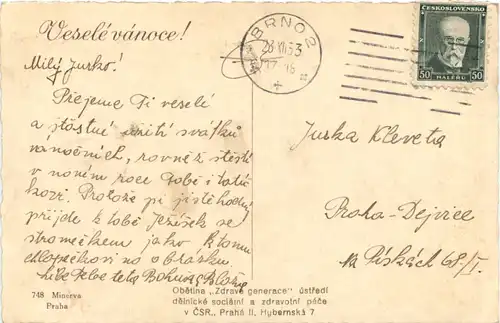 Veselé vánoce!
BRNO 2
23 XII 33
ČESKOSLOVENSKO
50 HALÉŘŮ 50
Milý Jurko!
Přejeme Ti veselé
a šťastné užití svátků
vánočních, rovněž štěstí
v novém roce Tobě i tatíč
kovi. Protože při jistě hodný
přijde k tobě Ježíšek se
stromečkem jako k tomu
chlapečkovi na obrázku.
Tebe teta
Jurka Kleveta
Praha-Dejvice
Na Pískách
748 Minerva
Praha
Obětina „Zdravé generace" ústředí
dělnické sociální a zdravotní péče
v ČSR., Praha II, Hybernská 7